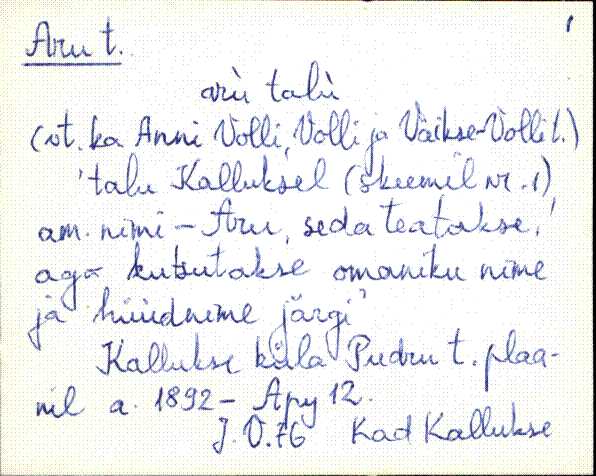 Aru t.
arù talù
(vt. ka Anni Volli, Volli ja Väikse-Volli t.)
'talu Kalluksel (skeemil nr. 1)
am. nimi – Aru, seda teatakse,
aga kutsutakse omaniku nime
ja hüüdnime järgi'
Kallukse küla Pudru t. plaa-
nil a. 1892 – Ару 12.
J. V. 76 Kad Kallukse